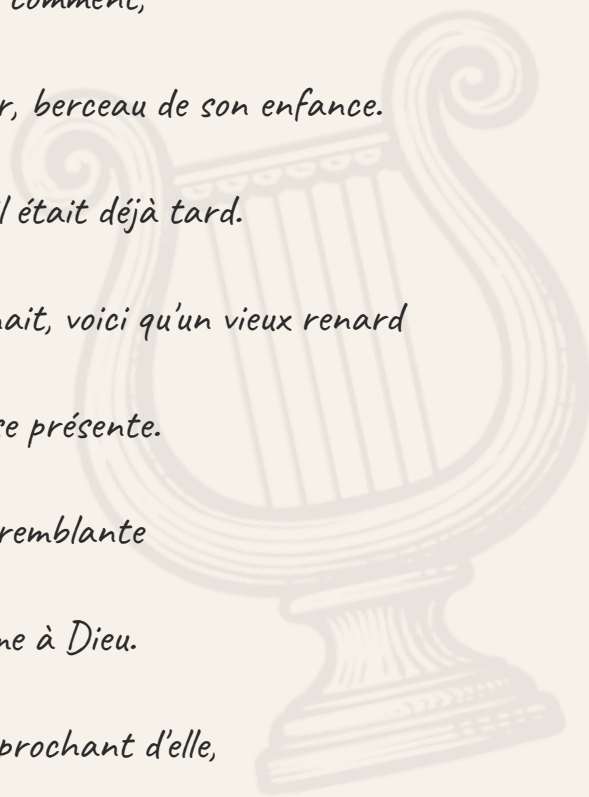 comment,
r, berceau de son enfance.
l était déjà tard.
ait, voici qu'un vieux renard
se présente.
remblante
me à Dieu.
prochant d'elle,